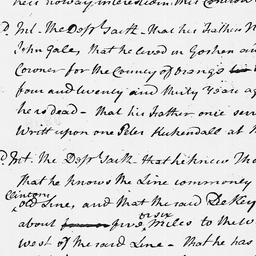 he is noway interested in this Controv
d. Int. The Depot. Saith - That his Father N
John Gale, that he lived in Goshen an
Coroner for the County of Orange
four and twenty and thirty Years ag
he is dead - that his Father once serv
Writt upon one Peter Kuykendall at M
d. Int. The Depot. Saith - that he knew Tho
That he knows the Line commonly
Clinton
old Line, and that the said DeKey
or six
about five, Miles to the W
west of the said Line - That he has